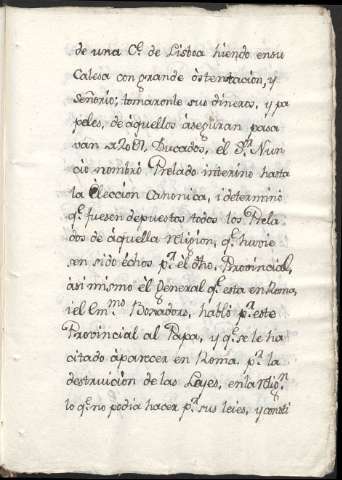 de una C.ᵃ de Lisboa hiendo ensu
Calesa con grande ostentacion, y
señorio; tomaronle sus dineros, y pa
peles, de aquellos aseguran pasa
van Ducados, el S.ʳ Nun
cio nombró Prelado interino hasta
la Eleccion Canonica, i determinó
q.ᵉ fuesen depuestos todos los Prela
dos de aquella religion, q.ᵉ havie
sen sido echos p.ʳ el dho, Provincial,
asi mismo el General q.ᵉ esta en Roma,
i el Em.ᵐᵒ Boxadors, habló p.ʳ este
Provincial al Papa, y q.ᵉ se le ha
citado áparecer en Roma p.ʳ la
destruicion de las Leyes, en la religⁿ
lo q.ᵉ no podia hacer p.ʳ sus leies, y consti